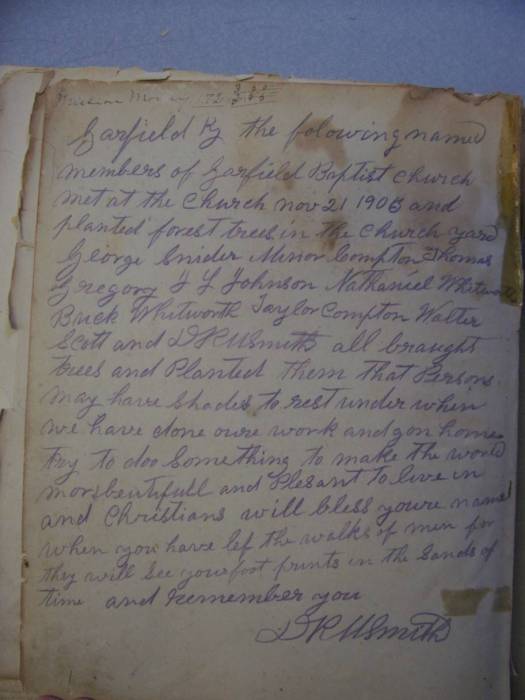 Mission Money
Garfield Ky the folowing named
members of Garfield Baptist church
met at the Church nov 21 1905 and
planted forest trees in the church yard
George Snider Minor Compton Thomas
Gregory J L Johnson Nathaniel Whitworth
Buck Whitworth Taylor Compton Walter
Scott and D R U Smith all braught
trees and Planted them that Persons
may have shades to rest under when
we have done oure work and gon home
try to doo Something to make the world
mor beutifull and Plesant to live in
and Christians will bless youre name
when you have lef the walks of men for
they will See your foot prints in the Sands of
time and Remember you
D R U Smith